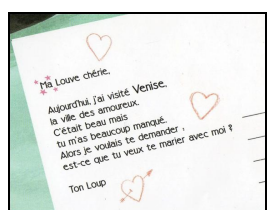 Ma Louve chérie,
Aujourd'hui, j'ai visité Venise,
la ville des amoureux.
C'était beau mais
tu m'as beaucoup manqué.
Alors je voulais te demander ,
est-ce que tu veux te marier avec moi ?
Ton Loup